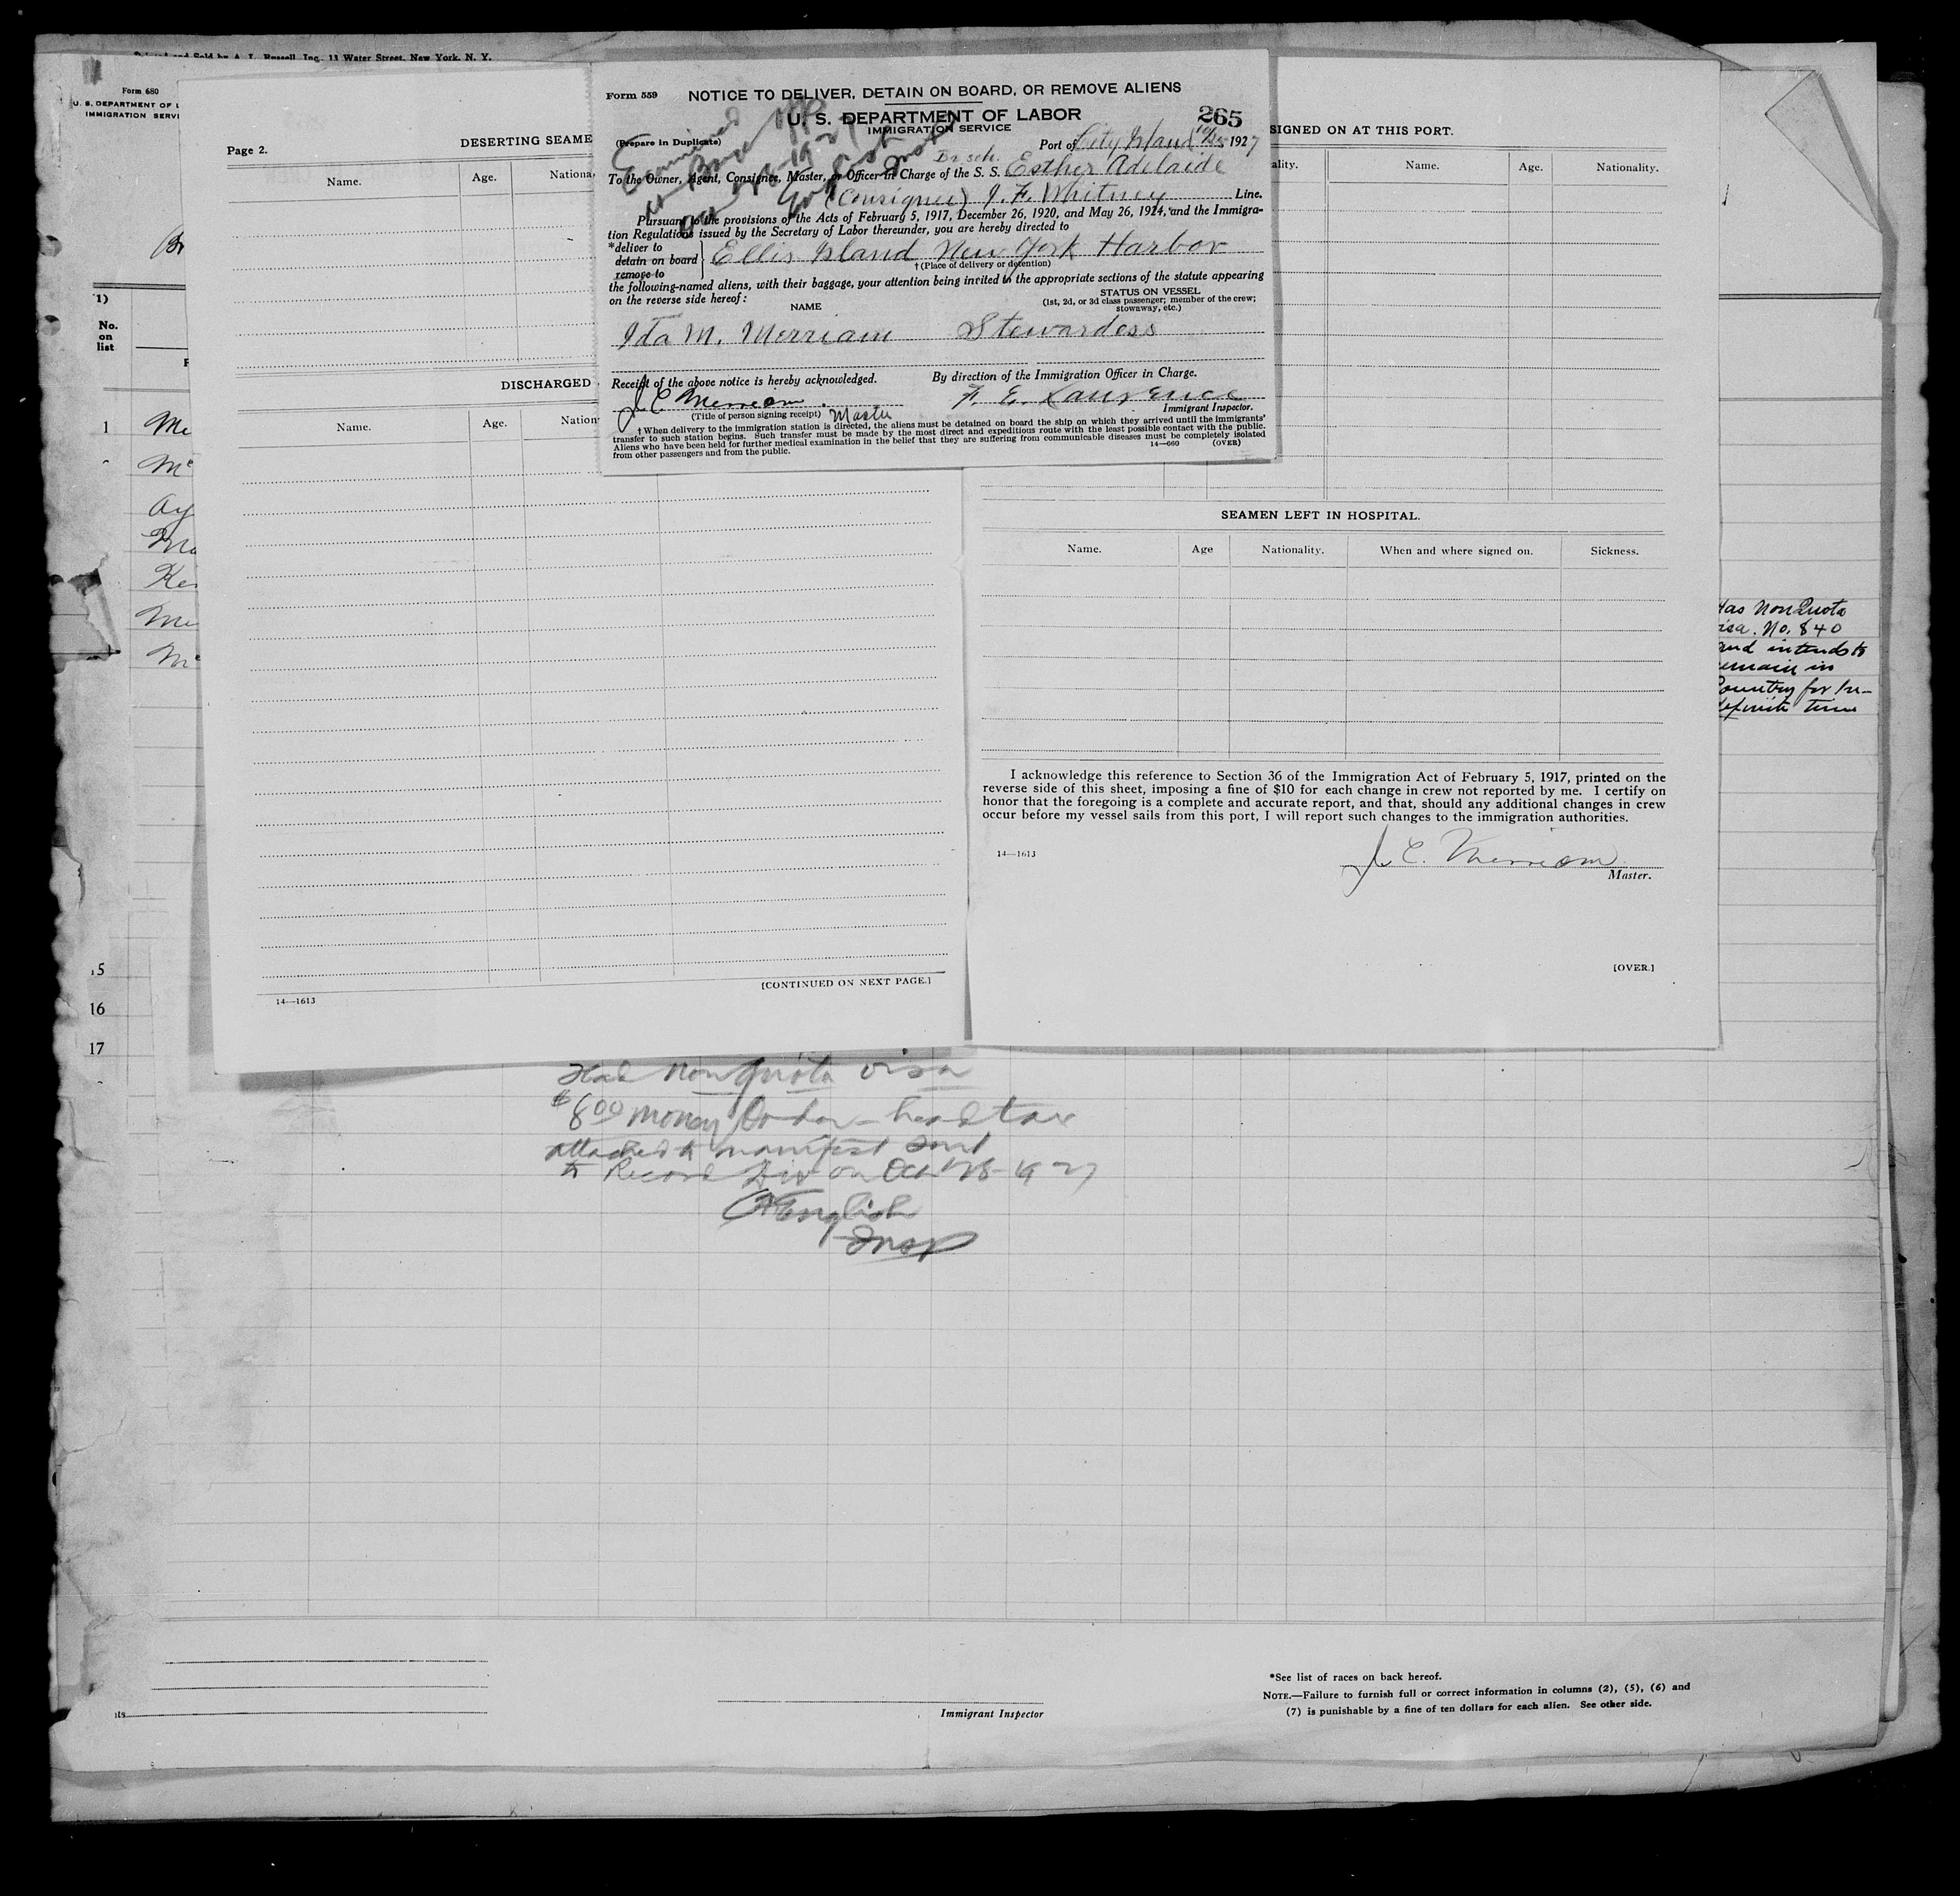 Printed and Sold by A. L. Russell, Inc., 11 Water Street, New York, N. Y.
Form 680
U. S. DEPARTMENT OF L
IMMIGRATION SERVI
1)
No.
on
list
1
Me
Me
Ay
Ma
Ke
Me
Me
15
16
17
Page 2.
DESERTING SEAME
Name.
Age.
Nationa
DISCHARGED
Name.
Age.
Nation
[CONTINUED ON NEXT PAGE.]
14—1613
Form 559
NOTICE TO DELIVER, DETAIN ON BOARD, OR REMOVE ALIENS
U. S. DEPARTMENT OF LABOR
IMMIGRATION SERVICE
265
(Prepare in Duplicate)
Examined
Port of City Island 1927
Br sch.
To the Owner, Agent, Consignee, Master, or Officer in Charge of the S. S. Esther Adelaide
(Consignee) J. F. Whitney Line.
Pursuant to the provisions of the Acts of February 5, 1917, December 26, 1920, and May 26, 1924, and the Immigra-
tion Regulations issued by the Secretary of Labor thereunder, you are hereby directed to
*deliver to
detain on board
remove to
Ellis Island New York Harbor
†(Place of delivery or detention)
the following-named aliens, with their baggage, your attention being invited to the appropriate sections of the statute appearing
on the reverse side hereof:
NAME
STATUS ON VESSEL
(1st, 2d, or 3d class passenger; member of the crew;
stowaway, etc.)
Ida M. Merriam Stewardess
Receipt of the above notice is hereby acknowledged.
By direction of the Immigration Officer in Charge.
J. C. Merriam
F. E. Lawrence
(Title of person signing receipt) Master
Immigrant Inspector.
†When delivery to the immigration station is directed, the aliens must be detained on board the ship on which they arrived until the immigrants'
transfer to such station begins. Such transfer must be made by the most direct and expeditious route with the least possible contact with the public.
Aliens who have been held for further medical examination in the belief that they are suffering from communicable diseases must be completely isolated
from other passengers and from the public.
14—660
(OVER)
SIGNED ON AT THIS PORT.
ality.
Name.
Age.
Nationality.
SEAMEN LEFT IN HOSPITAL.
Name.
Age
Nationality.
When and where signed on.
Sickness.
I acknowledge this reference to Section 36 of the Immigration Act of February 5, 1917, printed on the
reverse side of this sheet, imposing a fine of $10 for each change in crew not reported by me. I certify on
honor that the foregoing is a complete and accurate report, and that, should any additional changes in crew
occur before my vessel sails from this port, I will report such changes to the immigration authorities.
14—1613
J. C. Merriam
Master.
[OVER.]
Has Non Quota
isa. No. 840
and intends to
remain in
Country for In-
definite time
Had Non Quota visa
$8.00 money Order - head tax
attached to manifest sent
to Record Div on Oct 28-1927
English
Insp
*See list of races on back hereof.
NOTE.—Failure to furnish full or correct information in columns (2), (5), (6) and
(7) is punishable by a fine of ten dollars for each alien. See other side.
its
Immigrant Inspector